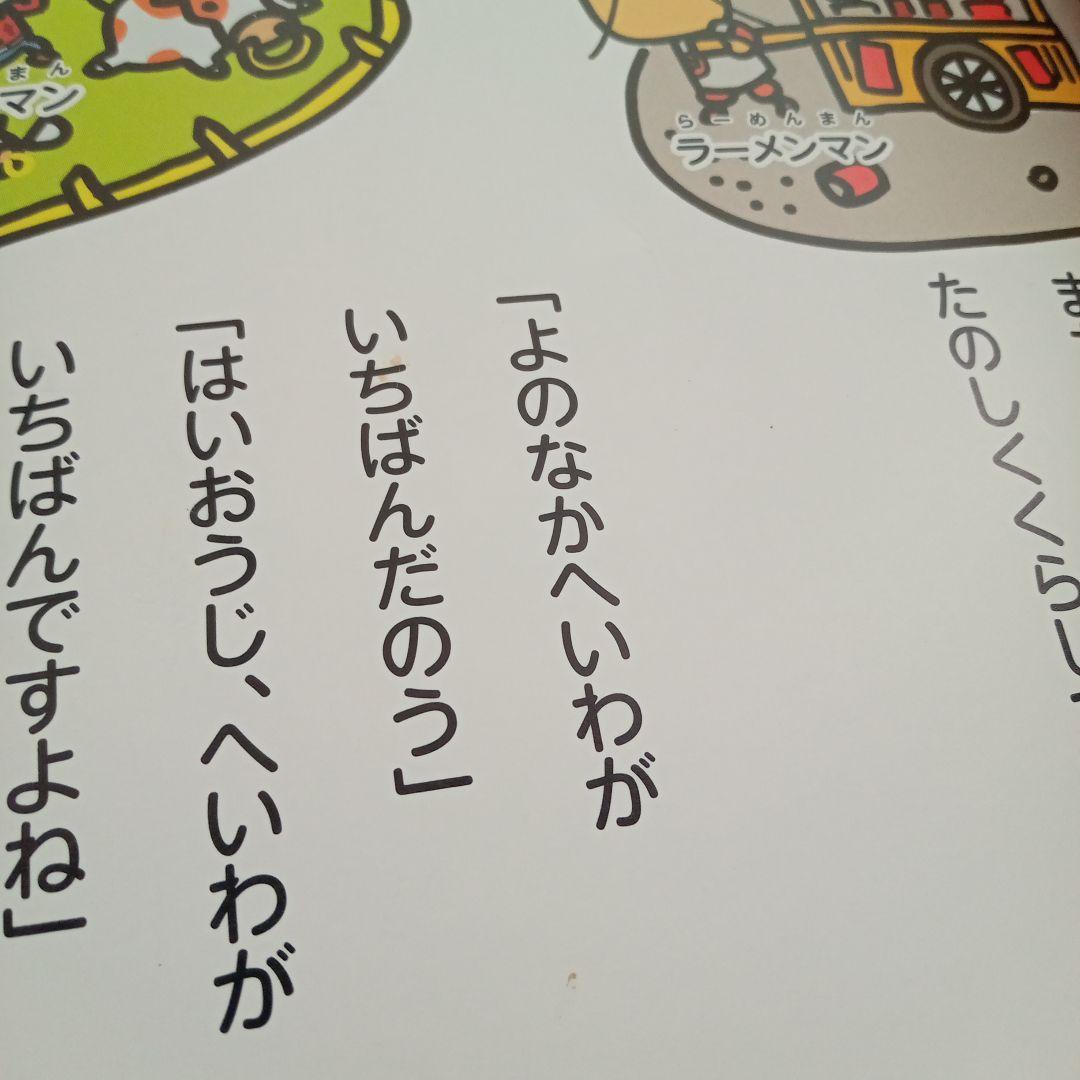 らーめんまん
ラーメンマン
まん
マン
たのしくくらし
「よのなかへいわが
いちばんだのう」
「はいおうじ、へいわが
いちばんですよね」